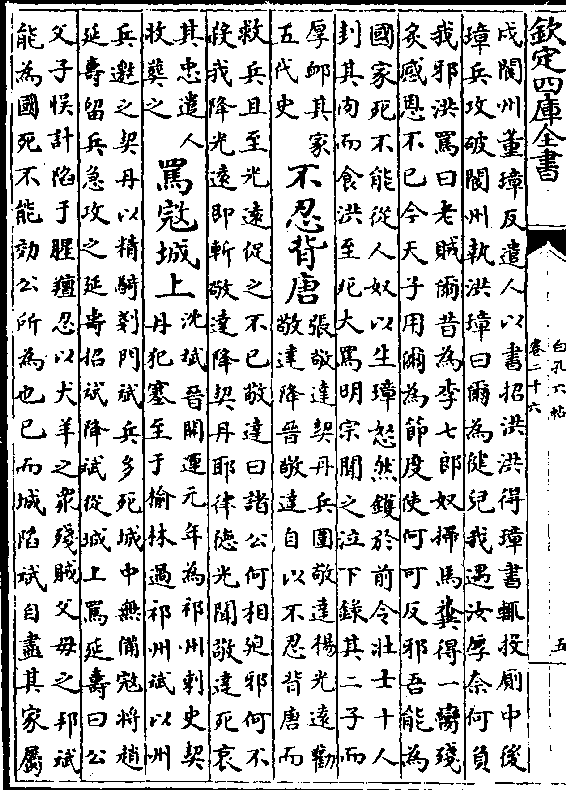 欽定四庫全書
白孔六帖
卷二十六
五
戍閬州董璋反遣人以書招洪洪得璋書輒投厠中後
璋兵攻破閬州執洪璋曰爾為健兒我遇汝厚奈何負
我邪洪罵曰老賊爾昔為李七郎奴掃馬糞得一臠殘
炙感恩不已今天子用爾為節度使何可反邪吾能為
國家死不能從人奴以生璋怒然鑊於前令壯士十人
刲其肉而食洪至死大罵明宗聞之泣下録其二子而
厚䘏其家
五代史
不忍背唐
張敬達契丹兵圍敬達楊光遠勸
敬達降晉敬達自以不忍背唐而
救兵且至光遠促之不已敬達曰諸公何相邪何不
殺我降光遠即斬敬達降契丹耶律徳光聞敬達死哀
其忠遣人
收葬之
罵寇城上
沈斌晉開運元年為祁州刺史契
丹犯塞至于榆林過祁州斌以州
兵邀之契丹以精騎剗門斌兵多死城中無備冦將趙
延壽留兵急攻之延壽招斌降斌從城上罵延壽曰公
父子悮計陷于腥羶忍以犬羊之衆殘賊父母之邦斌
能為國死不能効公所為也已而城陷斌自盡其家屬